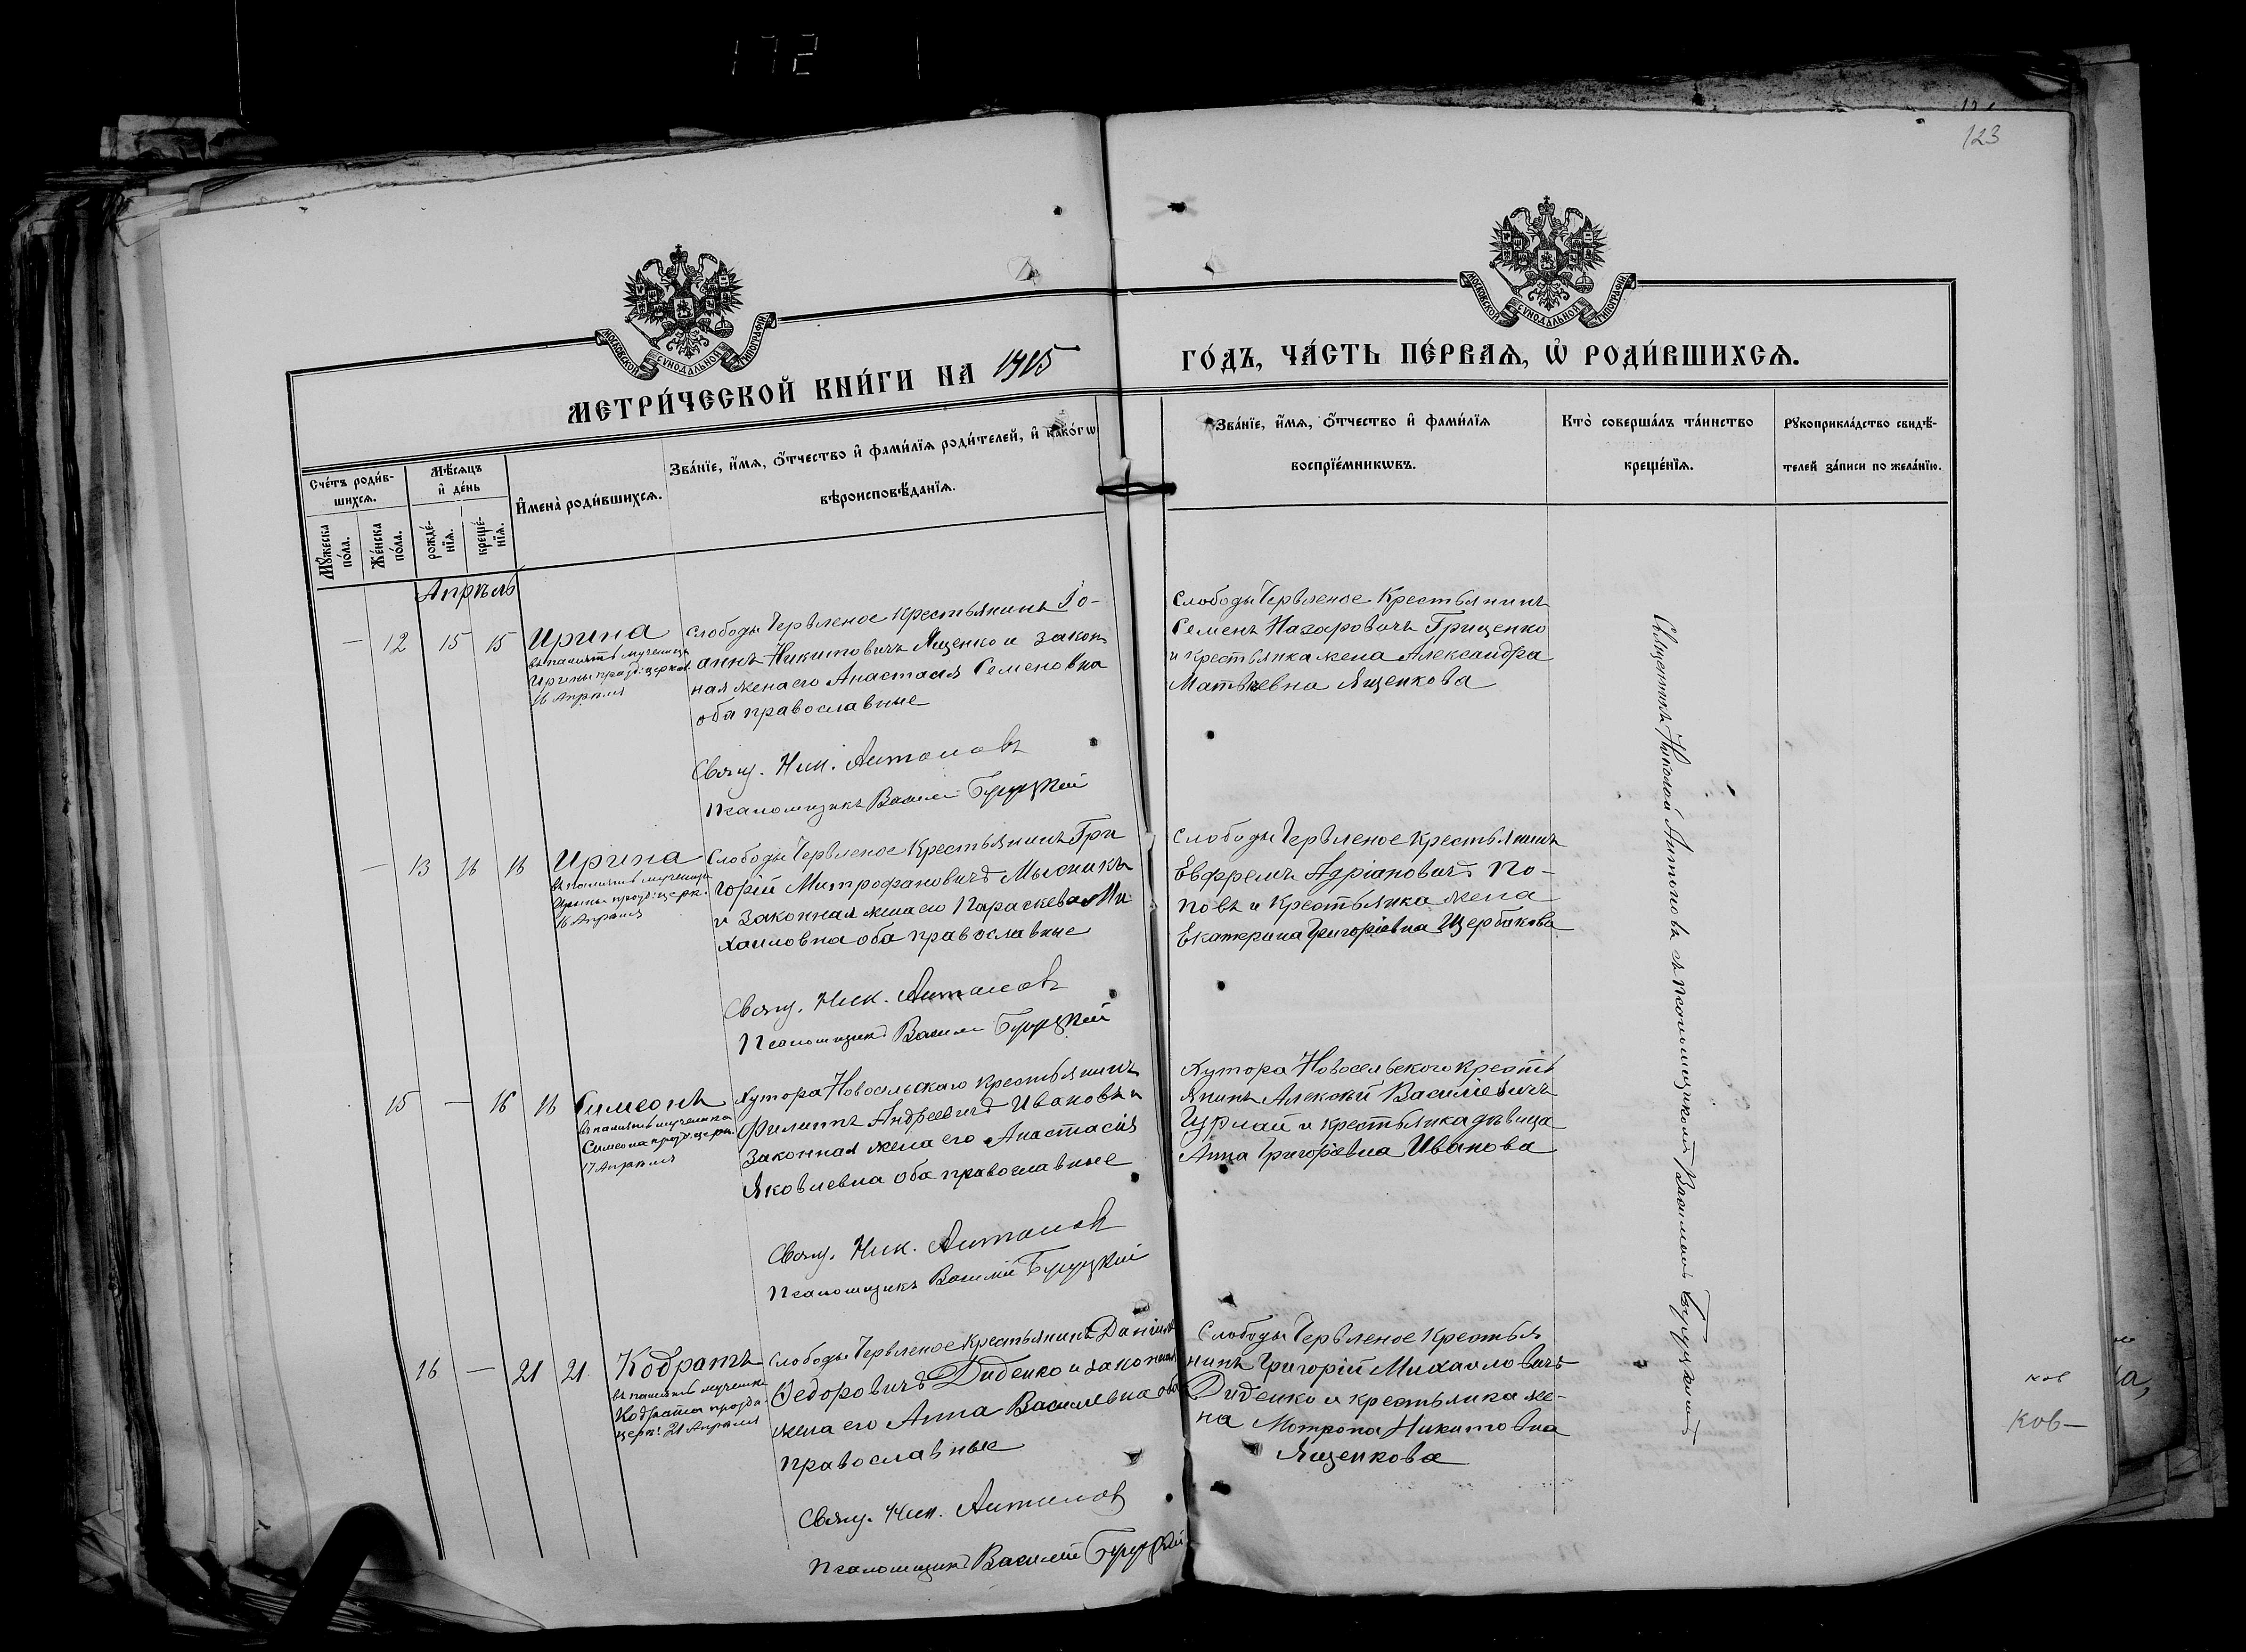 172
123
МОСКОВСКОЙ СѴНОДАЛЬНОЙ ТИПОГРАФІИ
МОСКОВСКОЙ СѴНОДАЛЬНОЙ ТИПОГРАФІИ
МЕТРИ́ЧЕСКОЙ КНИ́ГИ НА 1915
ГО́ДЪ, ЧА́СТЬ ПЕ́РВАѦ, Ѽ РОДИ́ВШИХСѦ.
Сче́тъ роди́в-
шихсѧ.
Мꙋ́жеска
по́ла.
Же́нска
по́ла.
Мѣ́сѧцъ
и҆ де́нь
рожде́-
нїѧ.
креще́-
нїѧ.
И҆мена̀ роди́вшихсѧ.
Зва́нїе, и҆́мѧ, ѻ҆́тчество и҆ фами́лїѧ роди́телей, и҆ како́гѡ
вѣроисповѣ́данїѧ.
Зва́нїе, и҆́мѧ, ѻ҆́тчество и҆ фами́лїѧ
воспрїе́мникѡвъ.
Кто̀ соверша́лъ та́инство
креще́нїѧ.
Рꙋкоприкла́дство свидѣ́-
телей за́писи по жела́нїю.
Апрѣль
— 12 15 15 Ирина
въ память мученицы
Ирины празд: церков
16 Апрѣля
Слободы Червленое Крестьянинъ Іо-
аннъ Никитовичъ Ященко и закон
ная жена его Анастасія Семеновна
оба православные
Свящ. Ник. Антоновъ
Псаломщикъ Василій Бугуцкій
Слободы Червленое Крестьянинъ
Семенъ Назаровичъ Гриценко
и крестьянка жена Александра
Матвѣевна Ященкова
— 13 16 16 Ирина
въ память мученицы
Ирины празд: церк.
16 Апрѣля
Слободы Червленое Крестьянинъ Гри
горій Митрофановичъ Мысникъ
и законная жена его Параскева Ми
хаиловна оба православные
Свящ. Ник. Антоновъ
Псаломщикъ Василій Бугуцкій
Слободы Червленое Крестьянинъ
Евфремъ Адріановичъ По-
повъ и Крестьянка жена
Екатерина Григоріевна Щербакова
15 — 16 16 Симеонъ
въ память мученика
Симеона празд: церк.
17 Апрѣля
Хутора Новосельскаго крестьянинъ
Филиппъ Андреевичъ Ивановъ и
законная жена его Анастасія
Яковлевна оба православные
Свящ. Ник. Антоновъ
Псаломщикъ Василій Бугуцкій
Хутора Новосельскаго Кресть
янинъ Алексѣй Василіевичъ
Цурлай и крестьянка дѣвица
Анна Григоріевна Иванова
16 — 21 21 Кодратъ
въ память мученика
Кодрата празд.
церк: 21 Апрѣля
Слободы Червленое Крестьянинъ Даніилъ
Федоровичъ Диденко и законная
жена его Анна Васильевна оба
православные
Свящ. Ник. Антоновъ
Псаломщикъ Василій Бугуцкій
Слободы Червленое Крестья
нинъ Григорій Михаиловичъ
Диденко и крестьянка же-
на Мотрона Никитовна
Ященкова
Священникъ Николай Антоновъ съ псаломщикомъ Василіемъ Бугуцкимъ
ков
а,
ков—